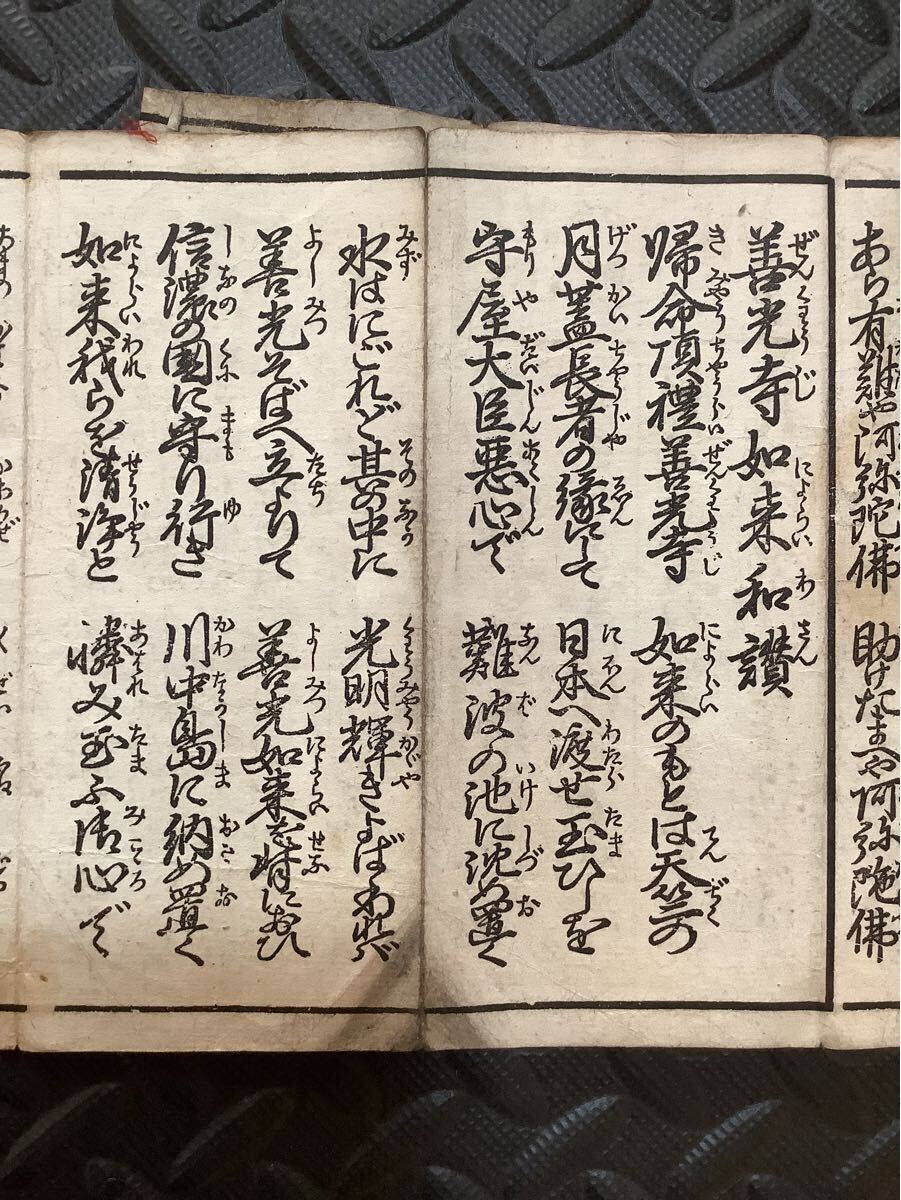 あら有難や阿弥陀佛 助けたまへや阿弥陀佛
善光寺如来和讃
帰命頂禮善光寺 如来のもとは天竺の
月蓋長者の縁にして 日本へ渡せ玉ひしを
守屋大臣悪心で 難波の池に沈め置く
水はにごれど其の中に 光明輝きよばわれバ
善光そばへ立よりて 善光如来を背におひ
信濃の國に守り行き 川中島に納め置く
如来我らを清浄と 憐み玉ふ御心で